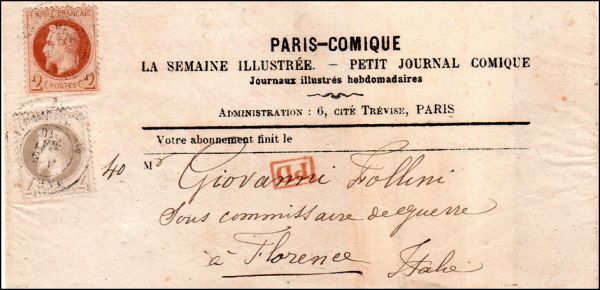 EMPIRE FRANÇAIS
2 C POSTES C 2
PARIS-COMIQUE
LA SEMAINE ILLUSTRÉE. — PETIT JOURNAL COMIQUE
Journaux illustrés hebdomadaires
ADMINISTRATION : 6, CITÉ TRÉVISE, PARIS
Votre abonnement finit le
40
Mr Giovanni Follini
PD
Sous commissaire de guerre
à Florence
Italie